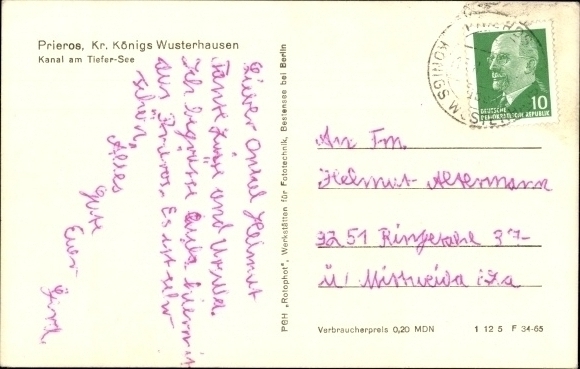 Prieros, Kr. Königs Wusterhausen
Kanal am Tiefer-See
Lieber Onkel Helmut
Tante Luise und Ursula.
Ich begrüsse Euch hiermit
aus Prieros. Es ist sehr
schön.
Alles
Gute
Euer
PGH „Rotophot", Werkstätten für Fototechnik, Bestensee bei Berlin
KÖNIGS WUSTERHAUSEN
DEUTSCHE
DEMOKRATISCHE REPUBLIK
10
An Fm.
Helmut Altermann
9251 Ringetahl 37
ü/ Mittweida i/Sa
Verbraucherpreis 0,20 MDN
1 12 5 F 34-65